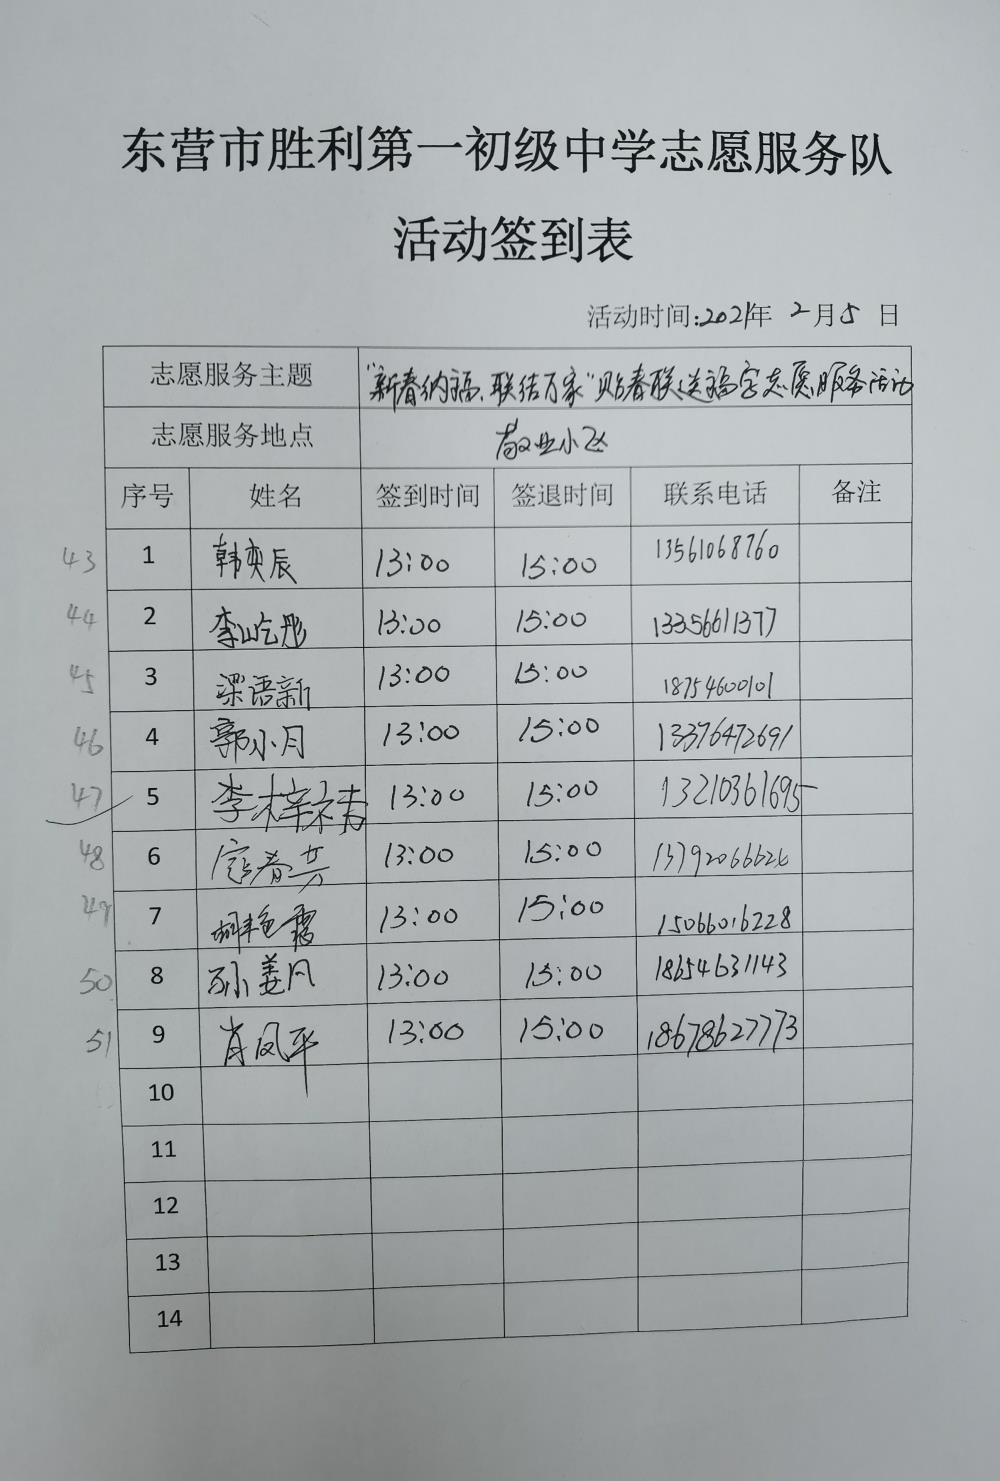 东营市胜利第一初级中学志愿服务队
活动签到表
活动时间:2021年 2月5日
志愿服务主题 "新春纳福、联结万家"贴春联送福字志愿服务活动
志愿服务地点 敬业小区
序号 姓名 签到时间 签退时间 联系电话 备注
43 1 韩奕辰 13:00 15:00 13561068760
44 2 李屹彤 13:00 15:00 13356611377
45 3 梁语新 13:00 15:00 18754600101
46 4 郭小月 13:00 15:00 13376472691
47 5 李梓祎 13:00 15:00 13210361695
48 6 寇春芳 13:00 15:00
49 7 胡艳霞 13:00 15:00 15066016228
50 8 孙姜凡 13:00 15:00 18654631143
51 9 肖凤平 13:00 15:00 18678627773
10
11
12
13
14